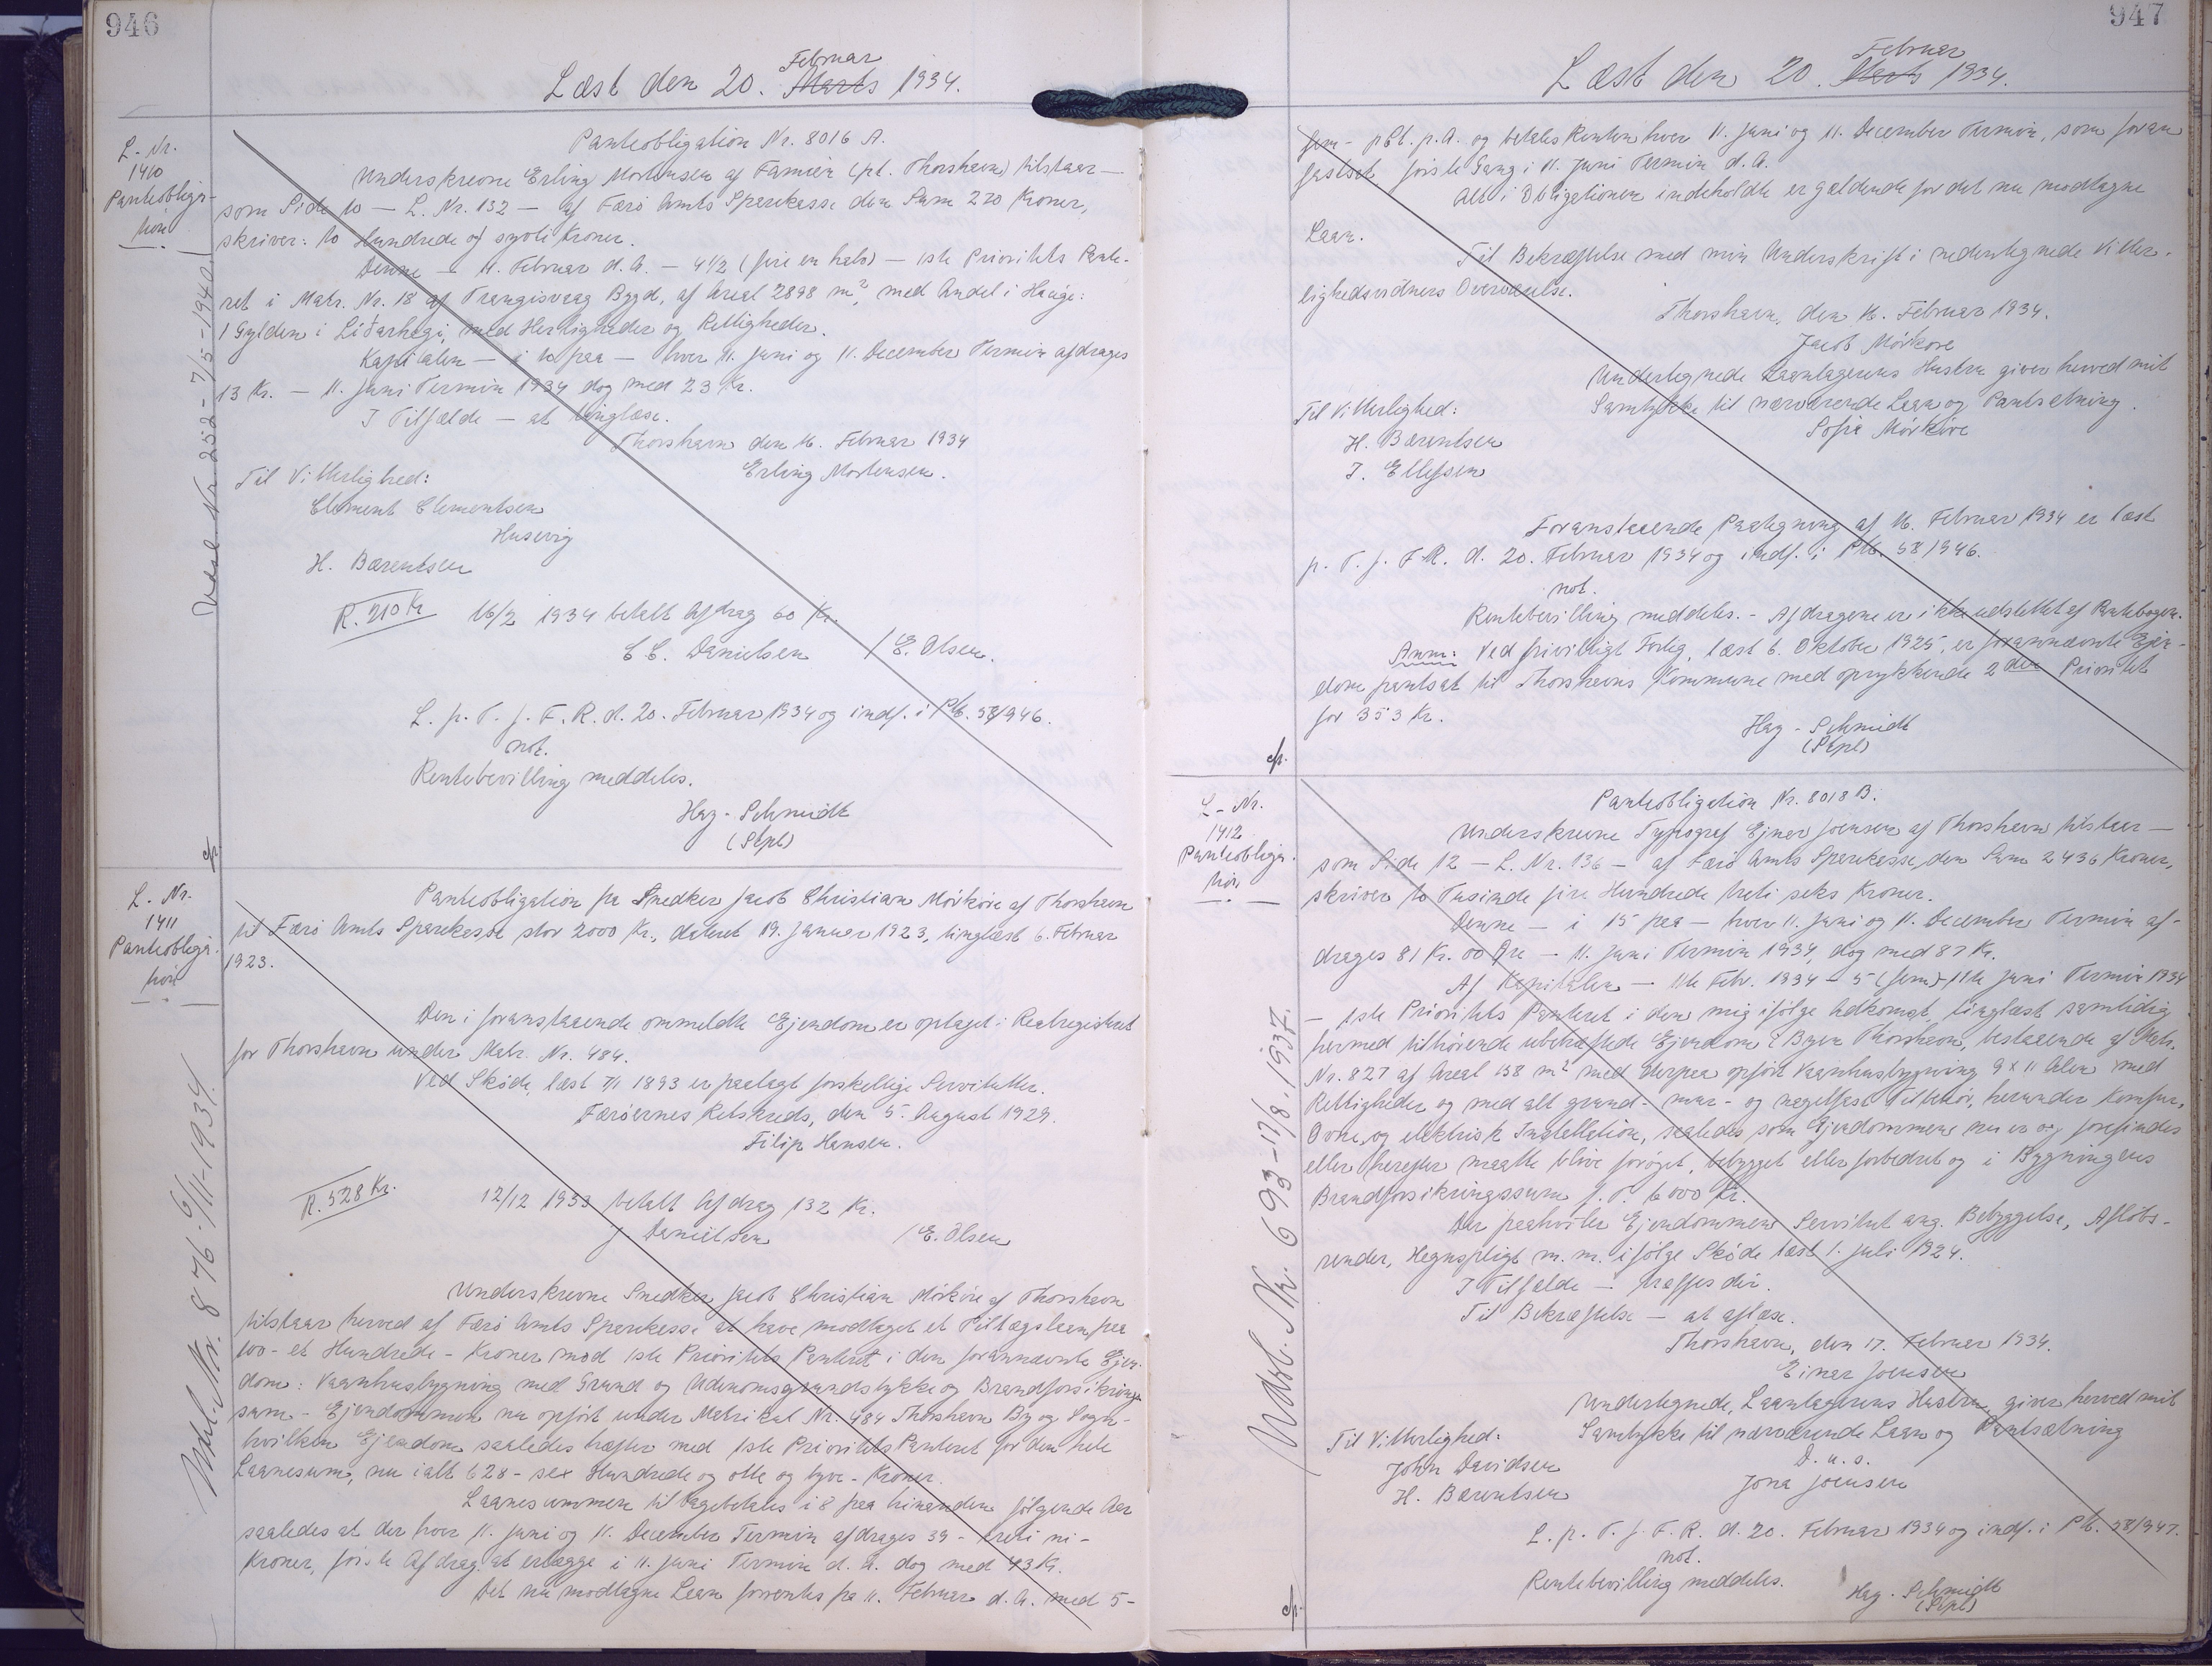 946
Læst den 20. Februar Marts 1934.
L. Nr.
1410
Panteobliga-
tion
Udsl. Nr. 252 - 7/5-1940
Panteobligation Nr. 8016 A.
Underskrevne Erling Mortensen af Famien (pt. Thorshavn) tilstaar —
som Side 10 — L. Nr. 132 — af Færø Amts Sparekasse den Sum 220 Kroner,
skriver: to Hundrede og tyve Kroner.
Denne — 11. Februar d. A. — 4 1/2 (fire en halv) — 1ste Prioritets Pante-
ret i Matr. Nr. 18 af Trangisvaag Bygd, af Areal 2898 m², med Andel i Hauge:
1 Gylden i Líðarhegi, med Herligheder og Rettigheder.
Kapitalen — i 10 paa — hver 11. Juni og 11. December Termin afdrages
13 Kr. — 11. Juni Termin 1934 dog med 23 Kr.
I Tilfælde — at tinglæse.
Thorshavn den 16. Februar 1934
Erling Mortensen.
Til Vitterlighed:
Clement Clementsen
Husevig
H. Bærentsen
R. 210 Kr
16/2 1934 betalt Afdrag 60 Kr.
C C. Danielsen / E. Olsen.
L. p. T. f. F. R. d. 20. Februar 1934 og indf. i Ptb. 58/946.
not.
Rentebevilling meddeles.
Hag-Schmidt
(Stpl)
cfr.
L. Nr.
1411
Panteobliga-
tion
Udsl. Nr. 876. 6/11-1934.
Panteobligation fra Snedker Jacob Christian Mörköre af Thorshavn
til Færö Amts Sparekasse stor 2000 Kr., dateret 19. Januar 1923, tinglæst 6. Februar
1923.
Den i foranstaaende ommeldte Ejendom er optaget i Realregistret
for Thorshavn under Matr. Nr. 484.
Ved Skøde, læst 7/1 1893 er paalagt forskellige Servitutter.
Færöernes Retskreds, den 5. August 1929.
Filip Hansen.
R. 528 Kr.
12/12 1933 betalt Afdrag 132 Kr.
J Danielsen / E. Olsen
Underskrevne Snedker Jacob Christian Mörköre af Thorshavn
tilstaar herved af Færö Amts Sparekasse at have modtaget et Tillægslaan paa
100 - et Hundrede - Kroner mod 1ste Prioritets Panteret i den forannævnte Ejen-
dom: Vaanhusbygning med Grund og Udenomsgrundstykke og Brandforsikrings
sum - Ejendommen nu opført under Matrikul Nr. 484 Thorshavn By og Sogn -
hvilken Ejendom saaledes hæfter med 1ste Prioritets Panteret for den hele
Laanesum, nu i alt 628 - sex Hundrede og otte og tyve - Kroner.
Laanesummen tilbagebetales i 8 paa hinanden følgende Aar
saaledes at der hver 11. Juni og 11. December Termin afdrages 39 - treti ni -
Kroner, første Afdrag at erlægge i 11. Juni Termin d. A. dog med 43 Kr.
Det nu modtagne Laan forrentes fra 11. Februar d. A. med 5 -
947
Læst den 20. Februar Marts 1934.
fem - pCt. p. A. og betales Renten hver 11. Juni og 11. December Termin, som foran
fastsat første Gang i 11. Juni Termin d. A.
Alt i Obligationen indeholdte er gældende for det nu modtagne
Laan.
Til Bekræftelse med min Underskrift i nedentegnede Vitter-
lighedsvidners Overværelse.
Thorshavn, den 16. Februar 1934.
Jacob Mörköre
Undertegnede Laantagerens Hustru giver herved mit
Samtykke til nærværende Laan og Pantsætning.
Sofia Mörköre
Til Vitterlighed:
H. Bærentsen
J. Ellefsen
Foranstaaende Paategning af 16. Februar 1934 er læst
p. T. f. F. R. d. 20. Februar 1934 og indf. i Ptb. 58/946.
not.
Rentebevilling meddeles. - Afdragene er ikke udslettet af Pantebogen.
Anm: Ved frivilligt Forlig, læst 6. Oktober 1925, er forannævnte Ejen-
dom pantsat til Thorshavns Kommune med oprykkende 2den Prioritet
for 353 Kr.
Hag-Schmidt
(Stpl)
cfr.
L. Nr.
1412
Panteobliga-
tion
Udsl. Nr. 693 - 17/8. 1937.
Panteobligation Nr. 8018 B.
Underskrevne Typograf Ejner Joensen af Thorshavn tilstaar —
som Side 12 — L. Nr. 136 — af Færö Amts Sparekasse, den Sum 2436 Kroner,
skriver to Tusinde fire Hundrede treti seks Kroner.
Denne — i 15 paa — hver 11. Juni og 11. December Termin af-
drages 81 Kr. 00 Øre — 11. Juni Termin 1934, dog med 87 Kr.
Af Kapitalen — 11te Febr. 1934 - 5 (fem) - 11te Juni Termin 1934
— 1ste Prioritets Panteret i den mig ifølge Adkomst, tinglæst samtidig
hermed tilhørende ubehæftede Ejendom i Byen Thorshavn, bestaaende af Matr.
Nr. 827 af Areal 158 m² med derpaa opført Vaanhusbygning 9 x 11 Alen med
Rettigheder og med alt grund- mur- og nagelfast Tilbehør, herunder Komfur,
Ovne, og elektrisk Installation, saaledes som Ejendommen nu er og forefindes
eller herefter maatte blive forøget, bebygget eller forbedret og i Bygningens
Brandforsikringssum p. T. 6000 Kr.
Der paahviler Ejendommen Servitut ang. Bebyggelse, Afløbs-
render, Hegnspligt m. m. ifølge Skøde læst 1. Juli 1924.
I Tilfælde — træffes dér.
Til Bekræftelse — at aflæse.
Thorshavn, den 17. Februar 1934.
Einar Joensen
Undertegnede, Laantagerens Hustru, giver herved mit
Samtykke til nærværende Laan og Pantsætning
D. u. s.
Jona Joensen
Til Vitterlighed:
John Davidsen
H. Bærentsen
L. p. T. f. F. R. d. 20. Februar 1934 og indf. i Ptb. 58/947.
not.
Rentebevilling meddeles.
Hag-Schmidt
(Stpl)
cfr.